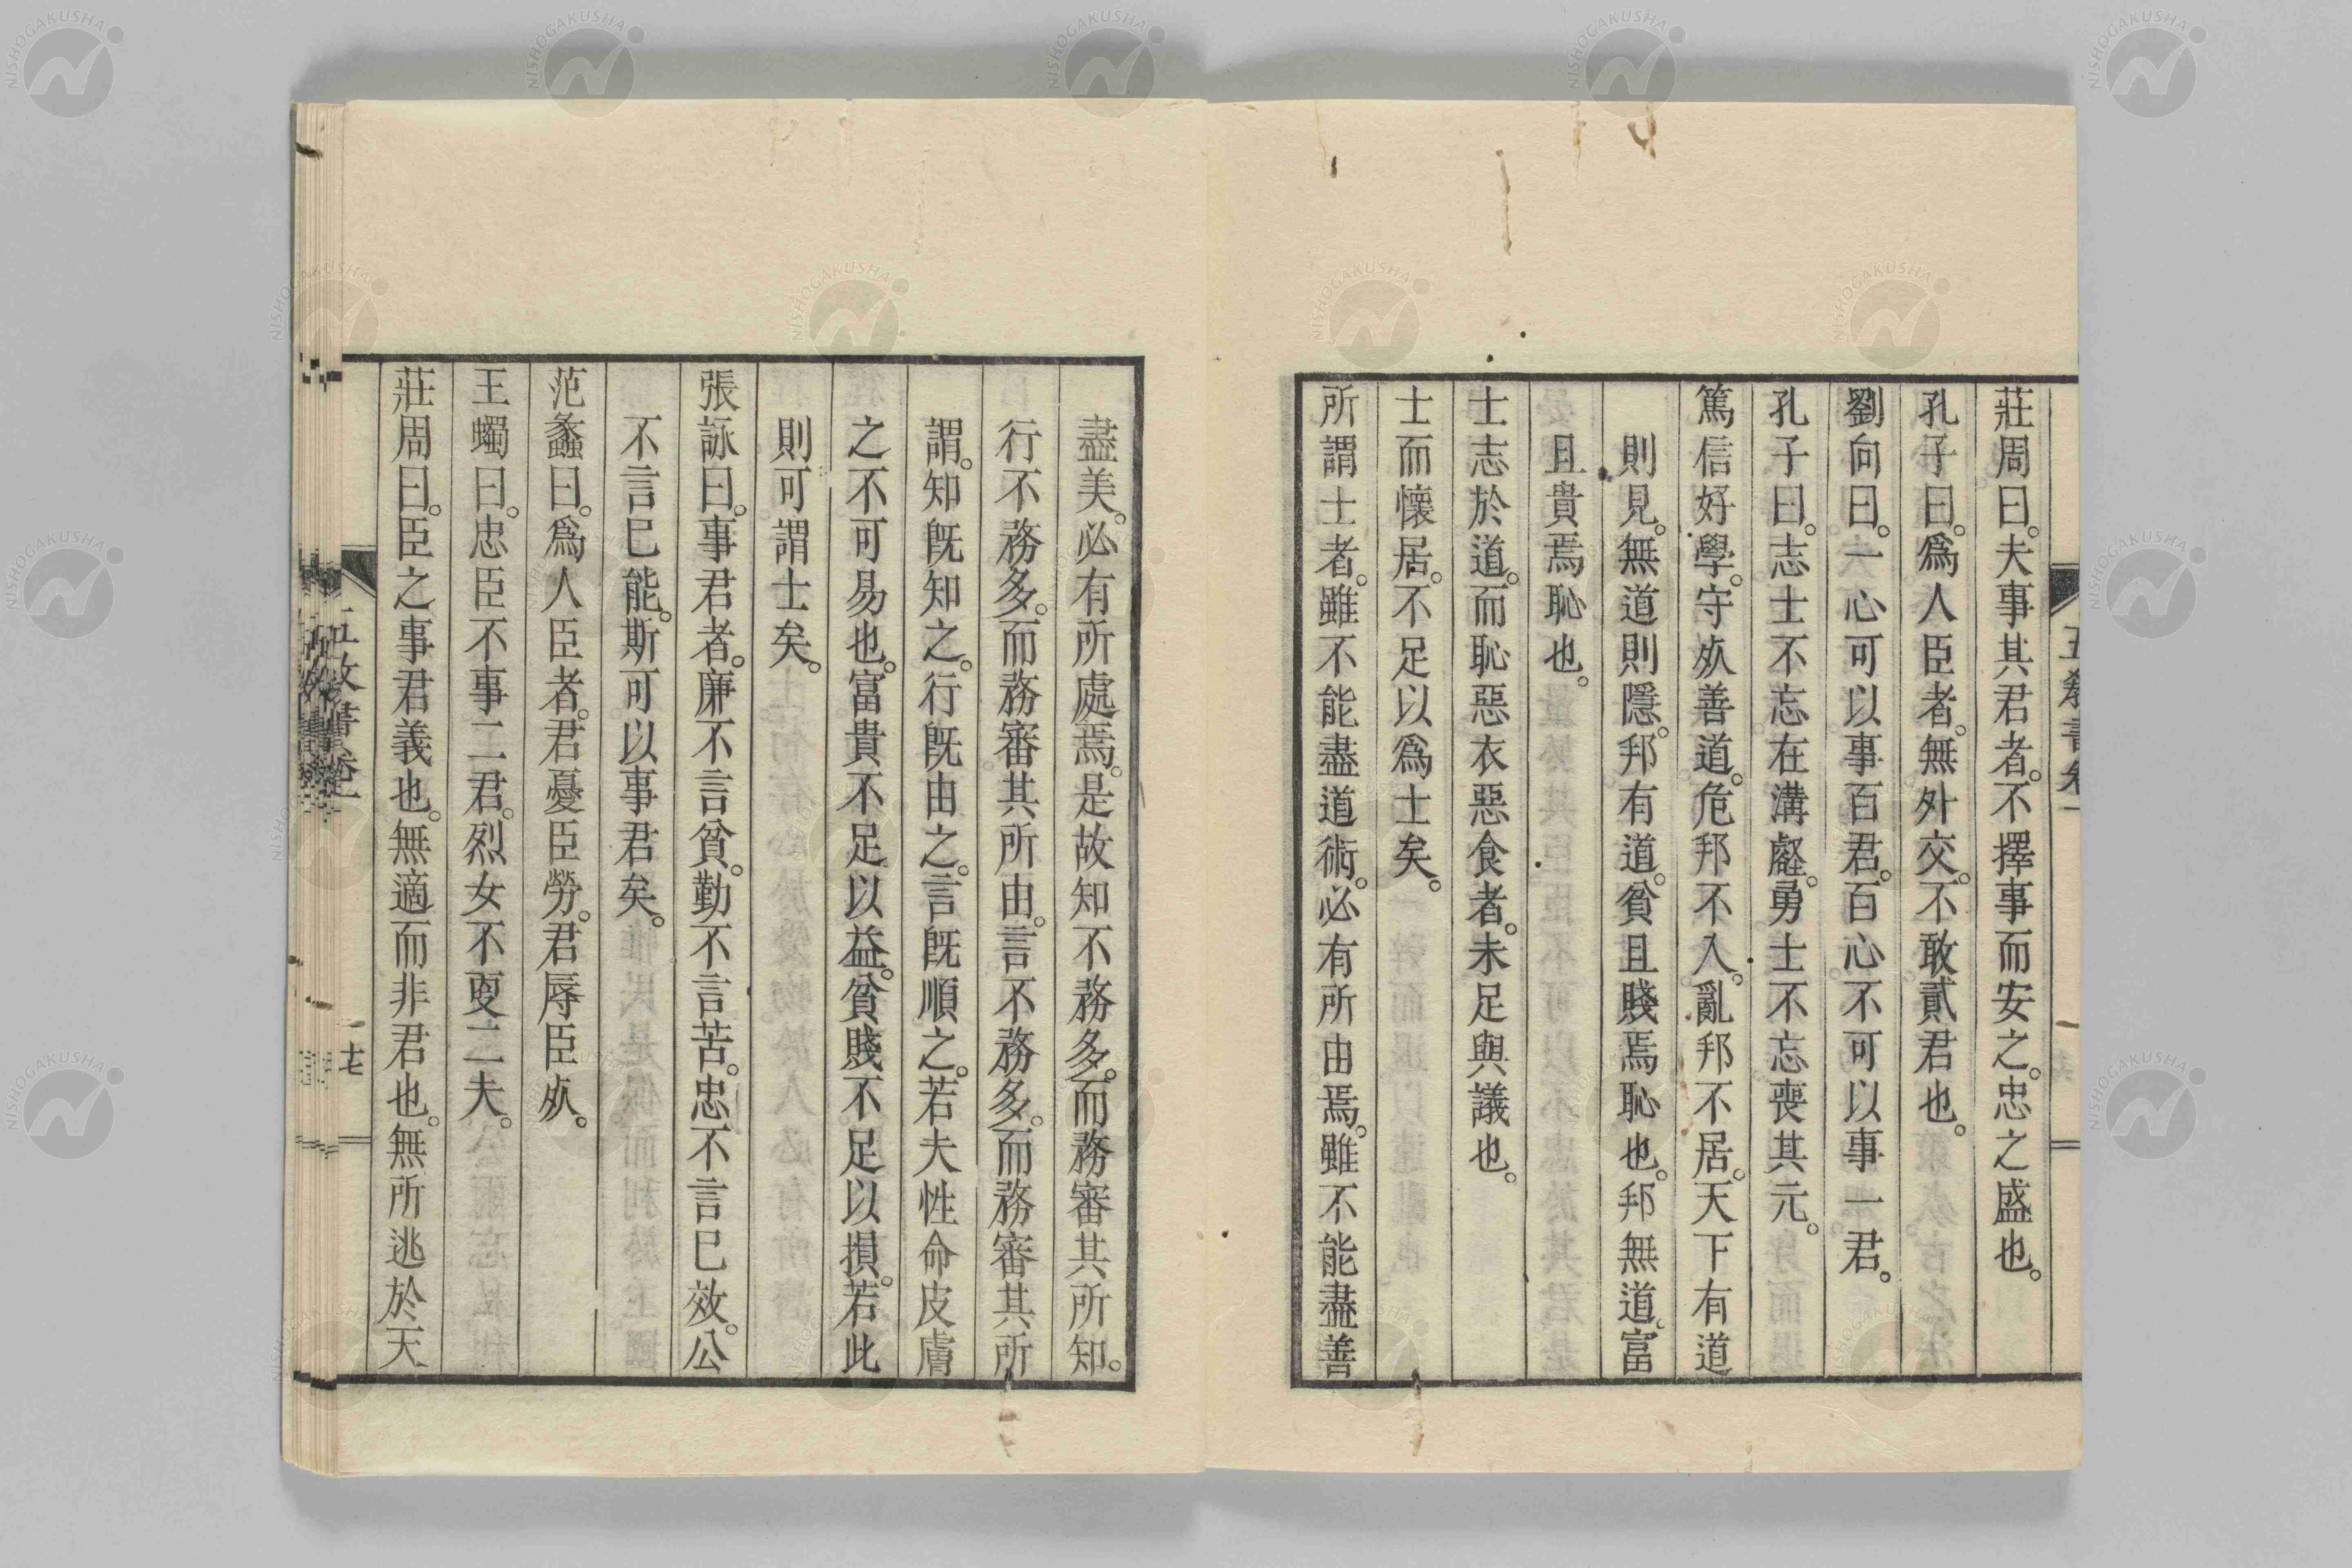 五教書卷一
莊周曰。夫事其君者。不擇事而安之。忠之盛也。
孔子曰。爲人臣者。無外交。不敢貳君也。
劉向曰。一心可以事百君。百心不可以事一君。
孔子曰。志士不忘在溝壑。勇士不忘喪其元。
篤信好學。守死善道。危邦不入。亂邦不居。天下有道
則見。無道則隱。邦有道。貧且賤焉恥也。邦無道。富
且貴焉恥也。
士志於道。而恥惡衣惡食者。未足與議也。
士而懷居。不足以爲士矣。
所謂士者。雖不能盡道術。必有所由焉。雖不能盡善
盡美。必有所處焉。是故知不務多。而務審其所知。
行不務多。而務審其所由。言不務多。而務審其所
謂。知旣知之。行旣由之。言旣順之。若夫性命皮膚
之不可易也。富貴不足以益。貧賤不足以損。若此
則可謂士矣。
張詠曰。事君者。廉不言貧。勤不言苦。忠不言已效。公
不言已能。斯可以事君矣。
范蠡曰。爲人臣者。君憂臣勞。君辱臣死。
王蠋曰。忠臣不事二君。烈女不更二夫。
莊周曰。臣之事君義也。無適而非君也。無所逃於天
五教書卷一
十七
NISHOGAKUSHA